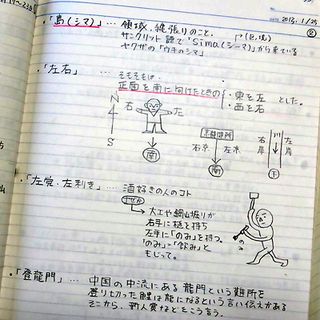 2013. 1/25
②
・「島(シマ)」… 領域、縄張りのこと。
サンクリット語で"Sima(シーマ)"から来ている
ヤクザの「ウチのシマ」
・「左右」…
そもそもは、
正面を南に向けたときの
・東を左
・西を右
とした。
N
S
右
左
南
右京
左京
南
川
右岸
左岸
下
・「左党、左利き」… 酒好きの人のコト
大工や鉱山堀りが
右手に槌を持ち
左手に「のみ」を持つ。
「のみ」=「飲み」と
もじって。
・「登龍門」… 中国の中流にある龍門という難所を
登り切った鯉は龍になるという言い伝えがある
そこから、新人賞などをこう言う。